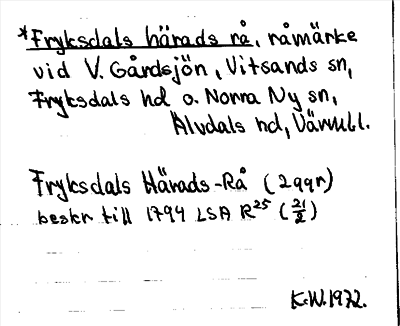 *Fryksdals härads rå, råmärke
vid V. Gårdsjön, Vitsands sn,
Fryksdals hd o. Norra Ny sn,
Älvdals hd, Värml.
Fryksdals Härads-Rå (2 ggr)
beskr till 1794 LSA R25 (21/2)
K.W. 1972.